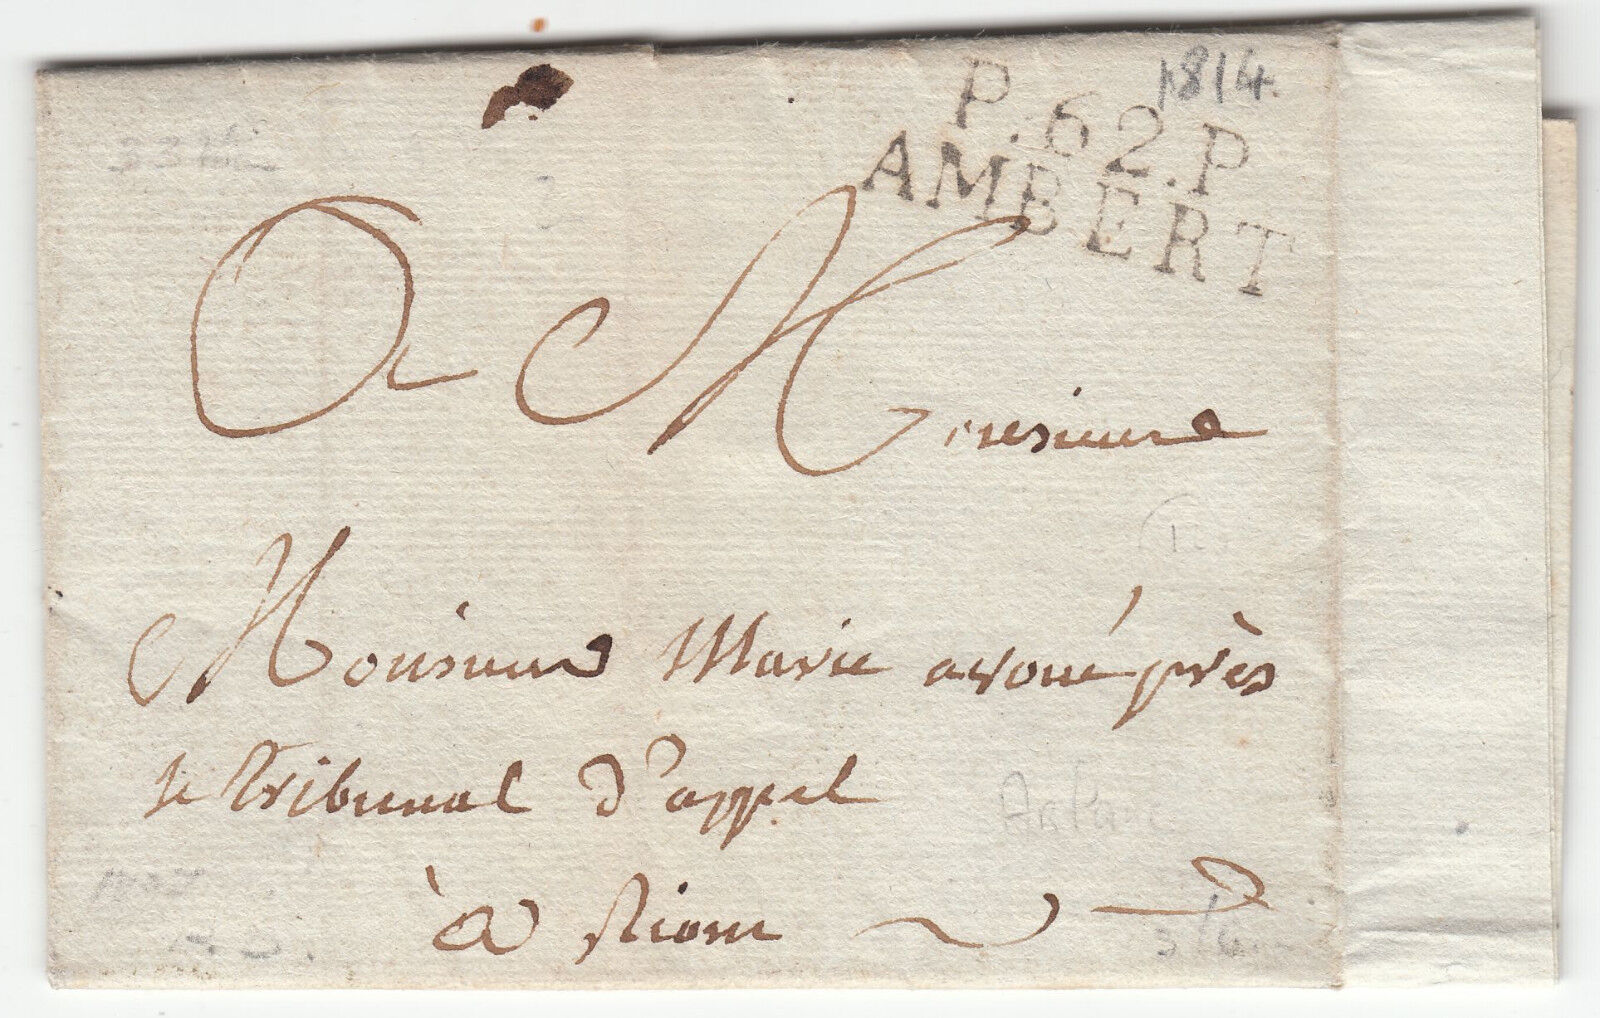 1814
P.62.P
AMBERT
A Monsieur
Monsieur Marie avoué près
le tribunal d'appel
à Riom